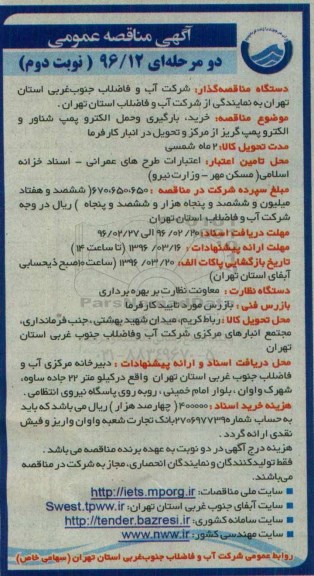 آگهی مناقصه عمومی
دو مرحله‌ای ۹۶/۱۲ ( نوبت دوم)
دستگاه مناقصه‌گذار: شرکت آب و فاضلاب جنوب‌غربی استان
تهران به نمایندگی از شرکت آب و فاضلاب استان تهران .
موضوع مناقصه: خرید، بارگیری وحمل الکترو پمپ شناور و
الکترو پمپ گریز از مرکز و تحویل در انبار کارفرما
مدت تحویل کالا: ۲ ماه شمسی
محل تامین اعتبار: اعتبارات طرح های عمرانی - اسناد خزانه
اسلامی( مسکن مهر - وزارت نیرو)
مبلغ سپرده شرکت در مناقصه : ۶۷۰،۶۵۰،۶۵۰( ششصد و هفتاد
میلیون و ششصد و پنجاه هزار و ششصد و پنجاه ) ریال در وجه
شرکت آب و فاضلاب استان تهران
مهلت دریافت اسناد: ۹۶/۰۲/۲۰ الی ۹۶/۰۲/۲۷
مهلت ارائه پیشنهادات : ۱۳۹۶/۰۳/۱۶ (تا ساعت ۱۴ )
تاریخ بازگشایی پاکات الف: ۱۳۹۶/۰۳/۲۰ (ساعت ۱۰صبح ذیحسابی
آبفای استان تهران)
دستگاه نظارت : معاونت نظارت بر بهره برداری
بازرس فنی : بازرس مورد تایید کارفرما
محل تحویل کالا : رباط کریم، میدان شهید بهشتی ، جنب فرمانداری،
مجتمع انبارهای مرکزی شرکت آب وفاضلاب جنوب غربی استان
تهران
محل دریافت اسناد و ارائه پیشنهادات : دبیرخانه مرکزی آب و
فاضلاب جنوب غربی استان تهران واقع درکیلو متر ۲۲ جاده ساوه،
شهرک واوان ، بلوار امام خمینی ، روبه روی پاسگاه نیروی انتظامی .
هزینه خرید اسناد : ۴۰۰۰۰۰ ( چهارصد هزار ) ریال می باشد که باید
به حساب شماره ۲۷۰۶۹۷۷۳۹۰ بانک تجارت شعبه واوان واریز و فیش
نقدی ارائه گردد .
هزینه درج آگهی در دو نوبت به عهده برنده مناقصه می باشد .
فقط تولیدکنندگان و نمایندگان انحصاری، مجاز به شرکت در مناقصه
می‌باشند.
سایت ملی مناقصات: http://iets.mporg.ir
سایت آبفای جنوب غربی استان تهران: Swest.tpww.ir
سایت سامانه کشوری: http://tender.bazresi.ir
سایت مهندسی کشور: www.nww.ir
روابط عمومی شرکت آب و فاضلاب جنوب‌غربی استان تهران (سهامی خاص)